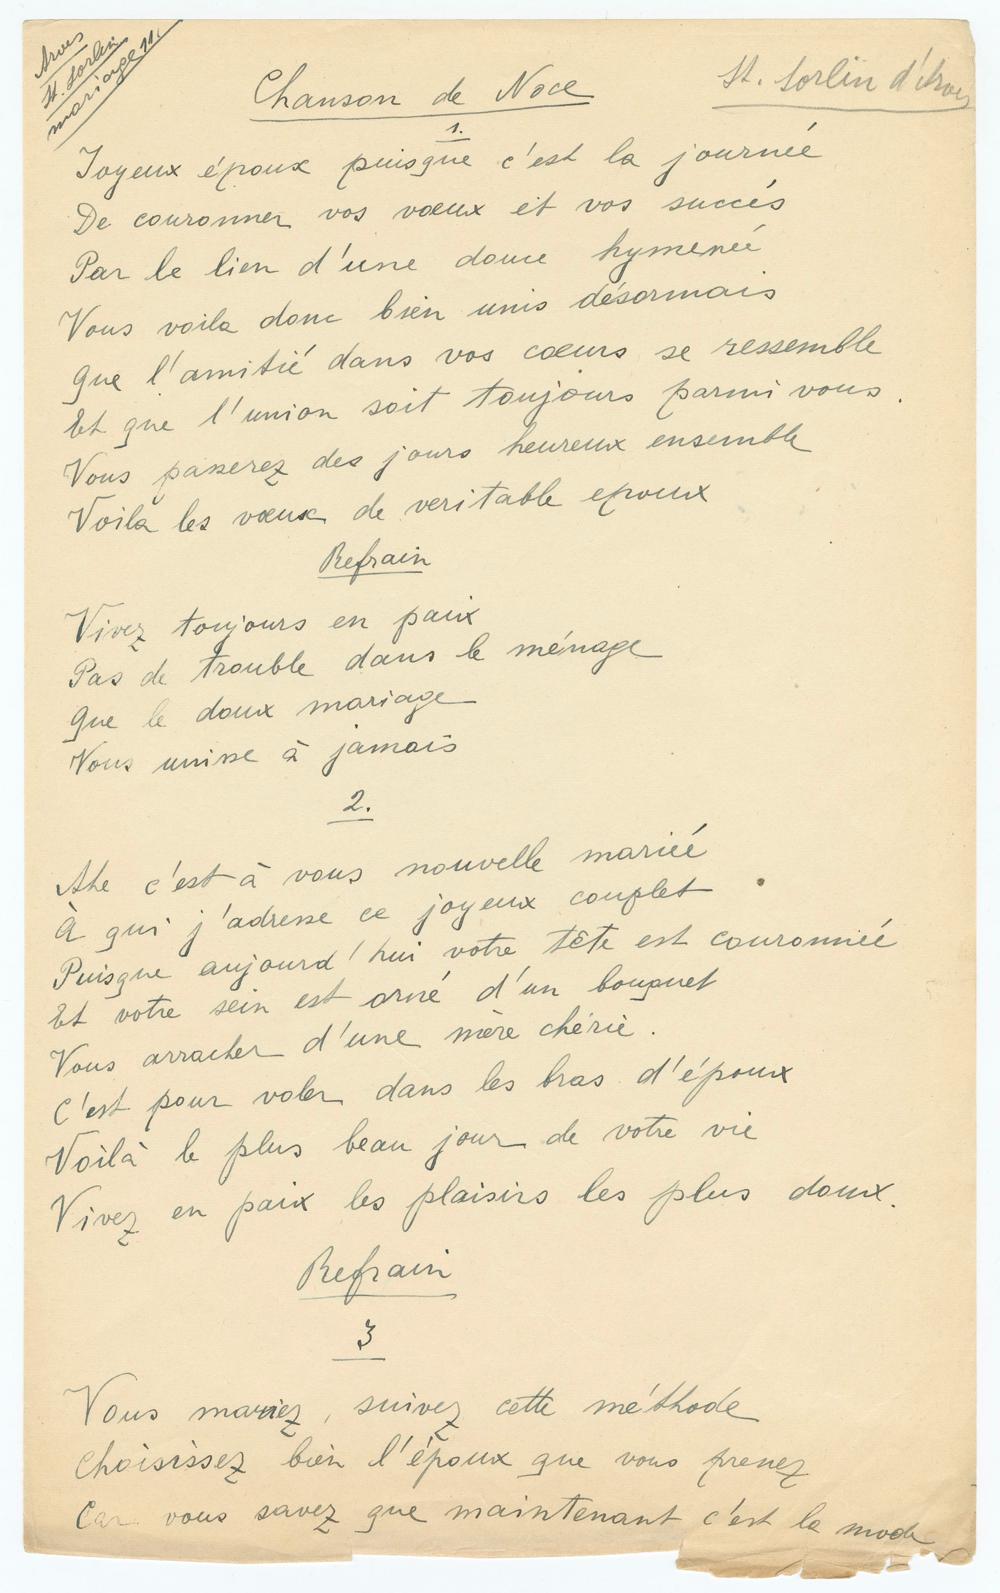 Arves
St. Sorlin
mariage 11.
St. Sorlin d'Arves
Chanson de Noce
1.
Joyeux époux puisque c'est la journée
De couronner vos vœux et vos succés
Par le lien d'une douce hymenée
Vous voila donc bien unis désormais
Que l'amitié dans vos cœurs se ressemble
Et que l'union soit toujours parmi vous.
Vous passerez des jours heureux ensemble
Voila les vœux de veritable epoux
Refrain
Vivez toujours en paix
Pas de trouble dans le ménage
Que le doux mariage
Vous unisse à jamais
2.
Ahe c'est à vous nouvelle mariée
À qui j'adresse ce joyeux couplet
Puisque aujourd'hui votre tête est couronnée
Et votre sein est orné d'un bouquet
Vous arracher d'une mère chérie.
C'est pour voler dans les bras d'époux
Voilà le plus beau jour de votre vie
Vivez en paix les plaisirs les plus doux.
Refrain
3
Vous mariez, suivez cette méthode
Choisissez bien l'époux que vous prenez
Car vous savez que maintenant c'est la mode